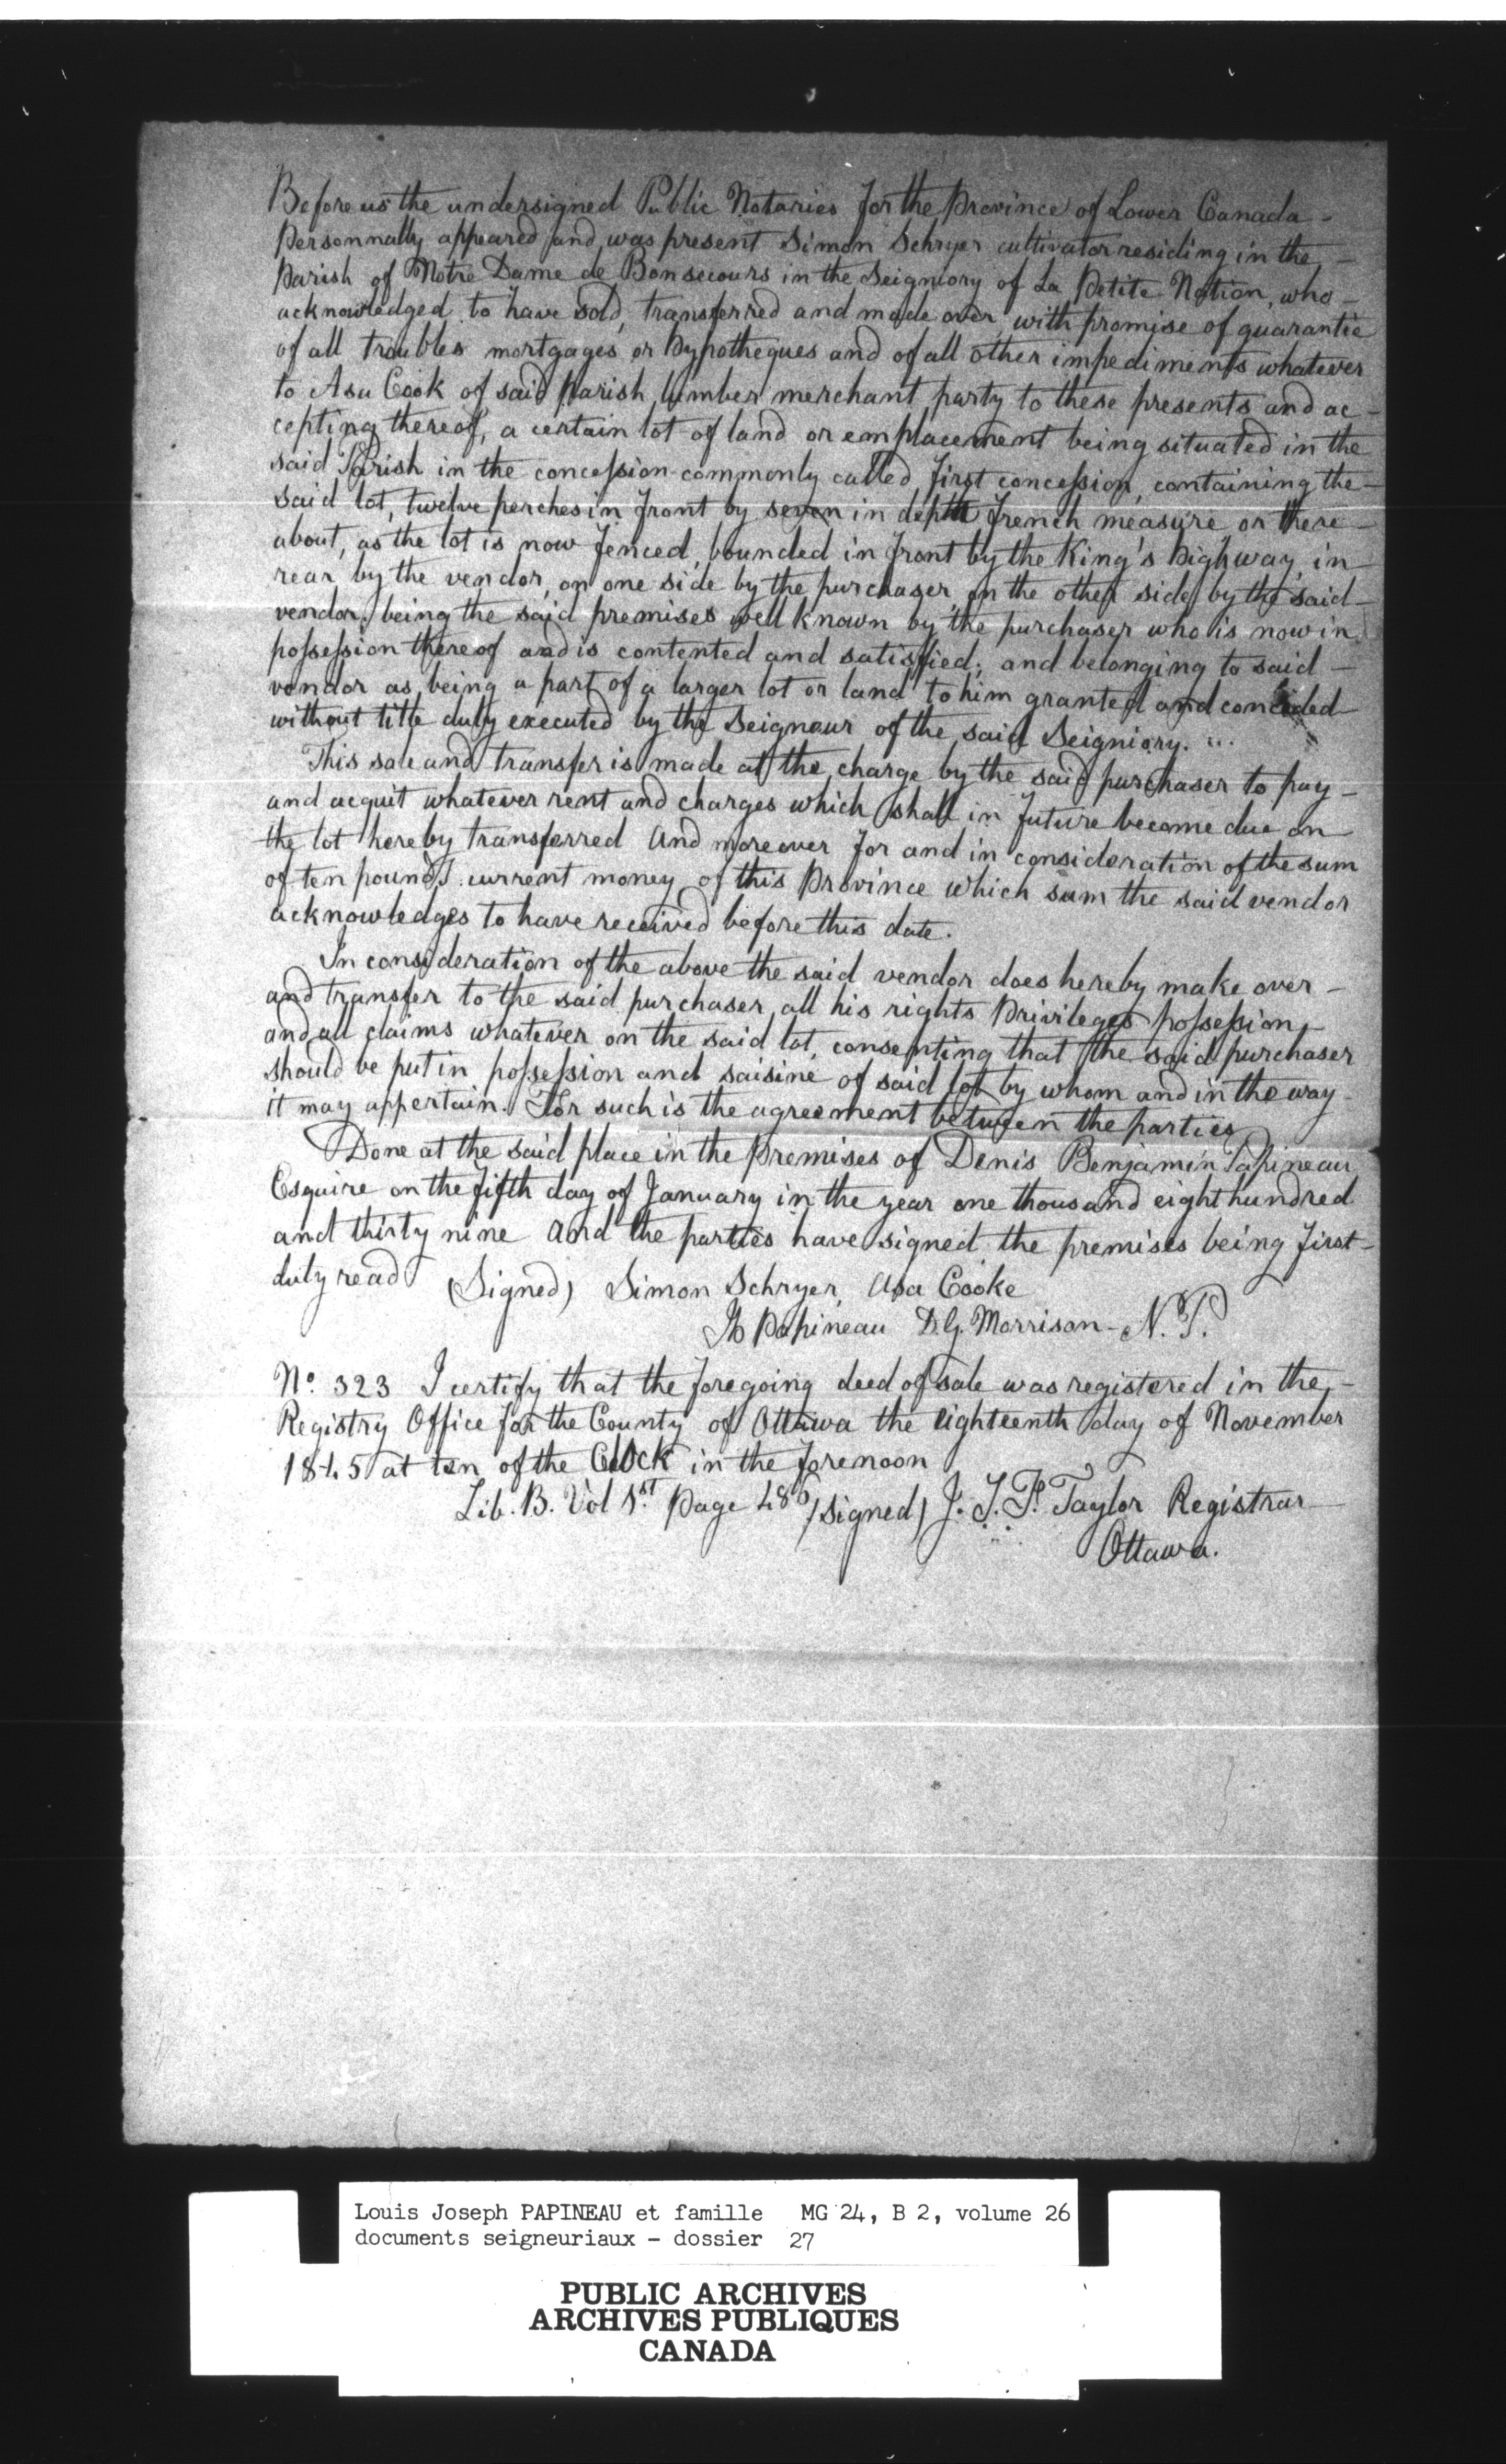 Before us the undersigned Public Notaries for the Province of Lower Canada -
Personnally appeared and was present Simon Schryer cultivator residing in the -
Parish of Notre Dame de Bonsecours in the Seigniory of La Petite Nation, who -
acknowledged to have sold, transferred and made over with promise of guarantie
of all troubles mortgages or hypotheques and of all other impediments whatever
to Asa Cook of said Parish lumber merchant party to these presents and ac -
cepting thereof, a certain lot of land or emplacement being situated in the
said Parish in the concession commonly called first concession, containing the -
said lot, twelve perches in front by seven in depth french measure or there -
about, as the lot is now fenced, bounded in front by the King's highway in -
rear by the vendor, on one side by the purchaser, on the other side by the said -
vendor, being the said premises well known by the purchaser who is now in
possession thereof and is contented and satisfied; and belonging to said -
vendor as being a part of a larger lot or land to him granted and conceded
without title duly executed by the Seigneur of the said Seigniory. ...
This sale and transfer is made at the charge by the said purchaser to pay -
and acquit whatever rent and charges which shall in future become due on
the lot hereby transferred And moreover for and in consideration of the sum
of ten pounds current money of this Province which sum the said vendor
acknowledges to have received before this date.
In consideration of the above the said vendor does hereby make over -
and transfer to the said purchaser, all his rights Privileges possession,
and all claims whatever on the said lot, consenting that the said purchaser
should be put in possession and saisine of said lot by whom and in the way -
it may appertain. For such is the agreement between the parties
Done at the said place in the Premises of Denis Benjamin Papineau
Esquire on the fifth day of January in the year one thousand eight hundred
and thirty nine And the parties have signed the premises being first -
duly read (Signed) Simon Schryer, Asa Cooke
Papineau D.G. Morrison - N.P.
No. 323 I certify that the foregoing deed of sale was registered in the -
Registry Office for the County of Ottawa the eighteenth day of November
1845 at ten of the Clock in the forenoon
Lib. B. Vol 1st Page 486 (signed) J. Taylor Registrar
Ottawa.
Louis Joseph PAPINEAU et famille MG 24, B 2, volume 26
documents seigneuriaux - dossier 27
PUBLIC ARCHIVES
ARCHIVES PUBLIQUES
CANADA